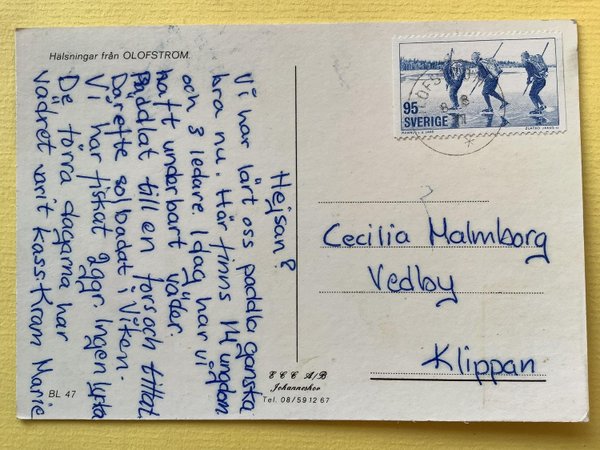 Hälsningar från OLOFSTRÖM.
Hejsan?
Vi har lärt oss paddla ganska
bra nu. Här finns 14 ungdom
och 3 ledare. Idag har vi
haft underbart väder.
Paddlat till en fors och tittat
Därefte solbadat i Viken.
Vi har fiskat 2ggr. Ingen lycka
De förra dagarna har
vädret varit kass. Kram Marie
BL 47
E C C A/B
Johanneshov
Tel. 08/59 12 67
95
SVERIGE
ZLATKO JAKUS
Cecilia Malmborg
Vedby
Klippan